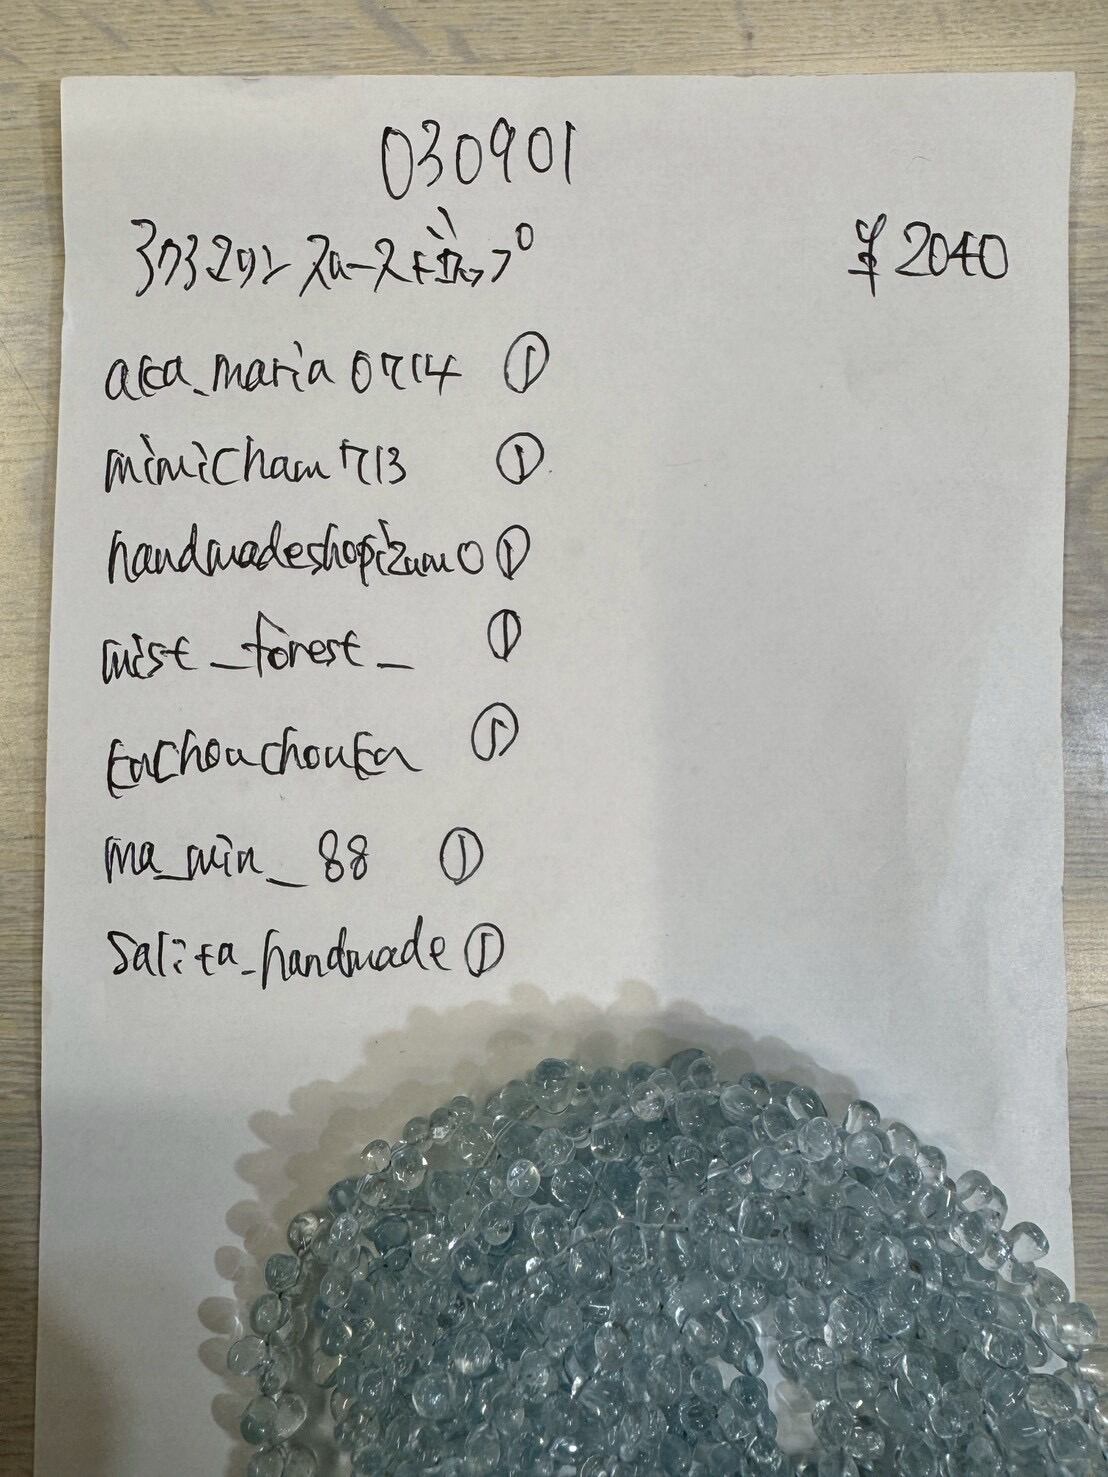 030901
アクアマリン スムースドロップ ¥2040
aka_maria0714 ①
minicham713 ①
handmadeshopizumo ①
mist_forest_ ①
kachouchouka ①
ma_min_88 ①
salita_handmade ①